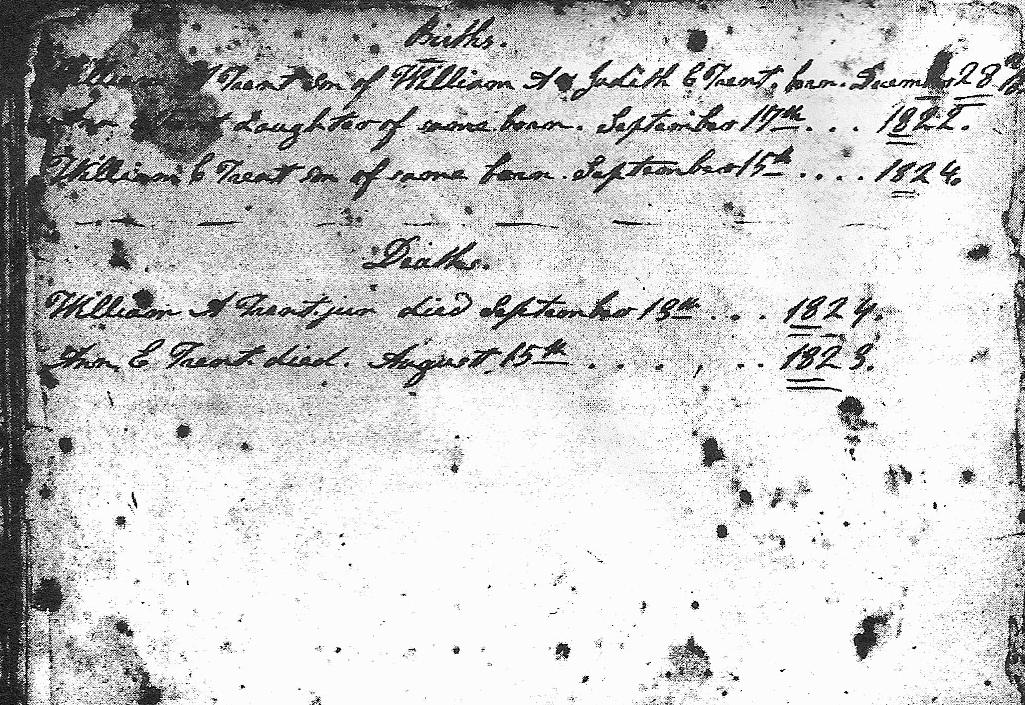 Births.
William A Trent son of William A & Judith E Trent, born. December 28th
Ann Trent daughter of same born. September 17th . . . 1822.
William E Trent son of same born. September 15th . . . . 1824.
Deaths.
William A Trent jun died September 18th . . . 1824.
Ann E Trent died. August 15th . . . . , . . 1823.